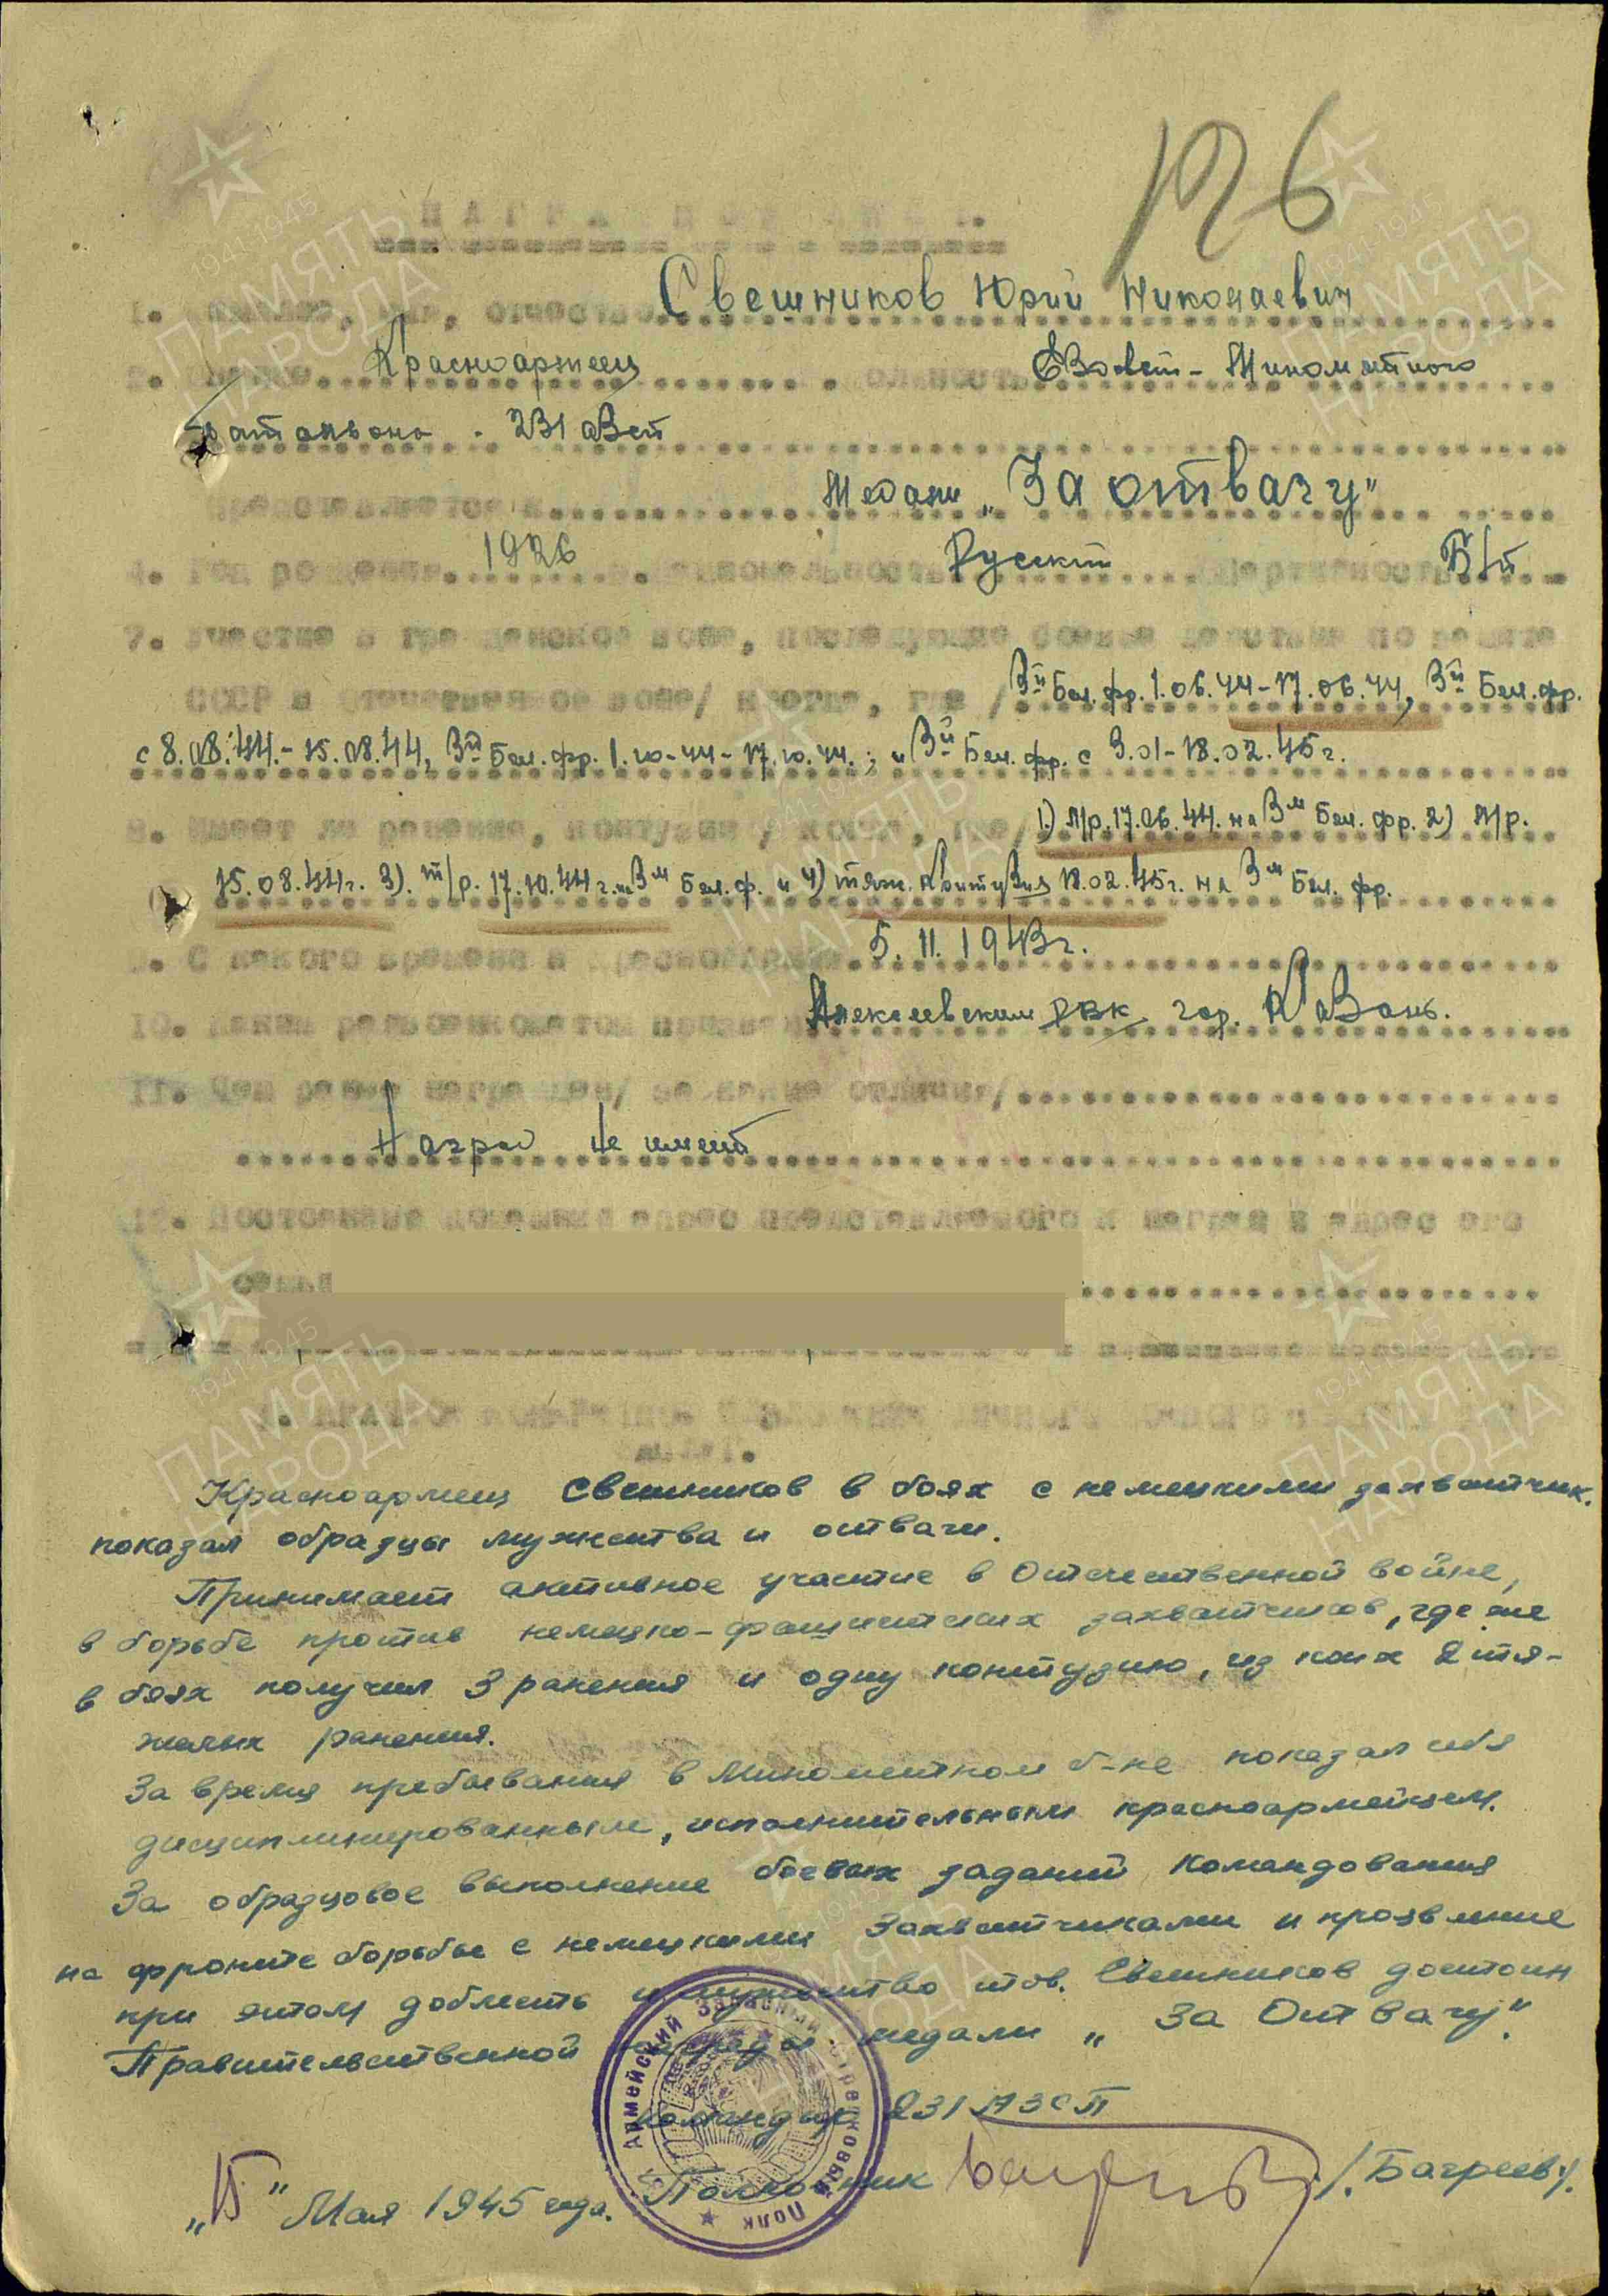 126
НАГРАДНОЙ ЛИСТ.
1. Фамилия, имя, отчество Свешников Юрий Николаевич
2. Звание Красноармеец должность
батальона
Представляется к Медали „За отвагу"
4. Год рождения 1926 5. Национальность Русский Партийность Б/п
7. Участие в гражданской войне, последующие боевые действия по защите
СССР и отечественной войне/ когда, где / 3й Бел. фр. 1.06.44-17.06.44, 3й Бел. фр.
с 8.08.44.- 15.08.44, 3й Бел. фр. 1.10-44-17.10.44.; и 3й Бел. фр. с 3.01-18.02.45г.
8. Имеет ли ранения, контузии / когда, где/ 1.) Л/р. 17.06.44. на 3м Бел. фр. 2) Л/р.
15.08.44г. 3). т/р. 17.10.44г. на 3м Бел. ф. и 4) тяж. контузия 18.02.45г. на 3м Бел. фр.
9. С какого времени в Красной армии 5.11.1943г.
10. Каким райвоенкоматом призван Алексеевским РВК гор. Казань.
11. Чем ранее награжден/ за какие отличия/
Наград не имеет
12. Постоянный домашний адрес представляемого к награде и адрес его
семьи
Красноармеец Свешников в боях с немецкими захватчик.
показал образцы мужества и отваги.
Принимает активное участие в Отечественной войне,
в борьбе против немецко-фашистских захватчиков, где же
в боях получил 3 ранения и одну контузию, из коих 2 тя-
желых ранения.
За время пребывания в Минометном б-не показал себя
дисциплинированным, исполнительным красноармейцем.
За образцовое выполнение боевых заданий командования
на фронте борьбы с немецкими захватчиками и проявление
при этом доблесть и мужество тов. Свешников достоин
Правительственной награды медали „За Отвагу".
Командир 231 АЗСП
Полковник /Багреев/.
„15" Мая 1945 года.
Армейский Запасный Стрелковый Полк
1941-1945
ПАМЯТЬ
НАРОДА